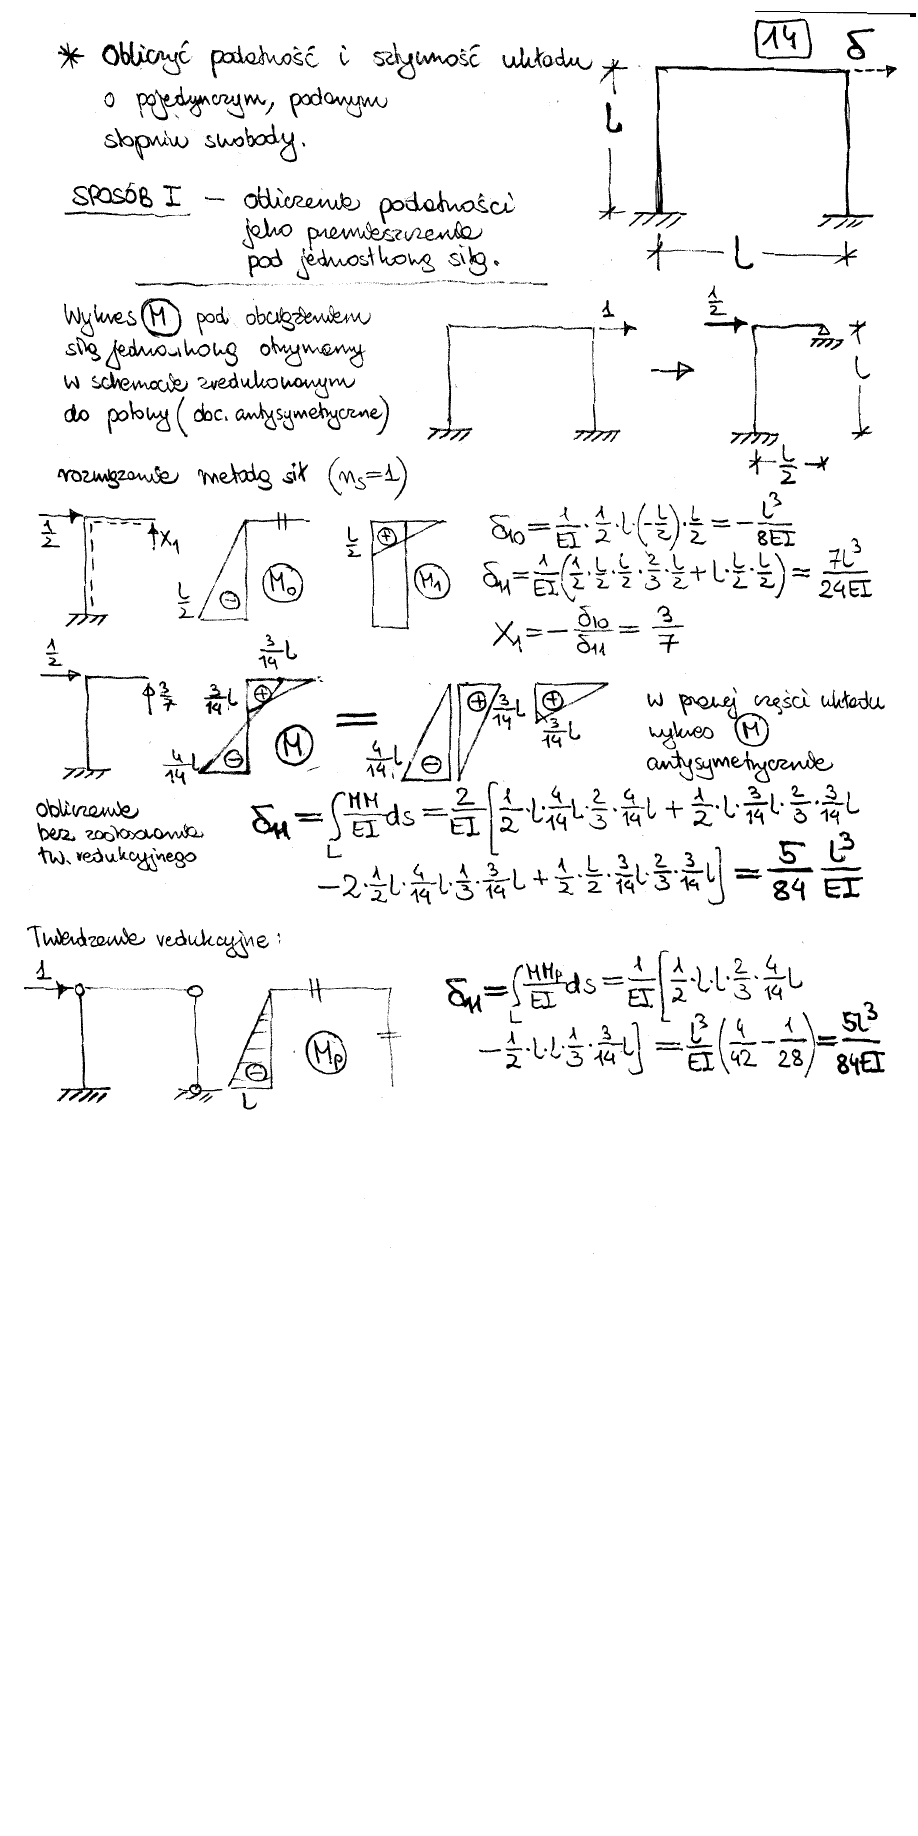 14 δ
* Obliczyć podatność i sztywność układu
o pojedynczym, podanym
stopniu swobody.
L
L
SPOSÓB I – obliczenie podatności
jako przemieszczenia
pod jednostkową siłą.
Wykres (M) pod obciążeniem
siłą jednostkową otrzymamy
w schemacie zredukowanym
do połowy (obc. antysymetryczne)
1
→
1/2
L
L/2
rozwiązanie metodą sił (ns=1)
1/2 X₁
L/2 ⊖ (M₀)
L/2 ⊕ (M₁)
δ₁₀ = 1/EI · 1/2 · L · (-L/2) · L/2 = - L³/8EI
δ₁₁ = 1/EI (1/2 · L/2 · L/2 · 2/3 · L/2 + L · L/2 · L/2) = 7L³/24EI
X₁ = - δ₁₀/δ₁₁ = 3/7
1/2 3/7
3/14 L
3/14 L ⊕
4/14 L ⊖ (M)
=
4/14 L ⊖ ⊕ 3/14 L ⊕ 3/14 L
w prawej części układu
wykres (M)
antysymetrycznie
obliczenie
bez zastosowania
tw. redukcyjnego
δ₁₁ = ∫L MM/EI ds = 2/EI [1/2 · L · 4/14 L · 2/3 · 4/14 L + 1/2 · L · 3/14 L · 2/3 · 3/14 L
- 2 · 1/2 L · 4/14 L · 1/3 · 3/14 L + 1/2 · L/2 · 3/14 L · 2/3 · 3/14 L] = 5/84 L³/EI
Twierdzenie redukcyjne:
1
⊖ (Mp)
L
δ₁₁ = ∫L MMp/EI ds = 1/EI [1/2 · L · L · 2/3 · 4/14 L
- 1/2 · L · L · 1/3 · 3/14 L] = L³/EI (4/42 - 1/28) = 5L³/84EI